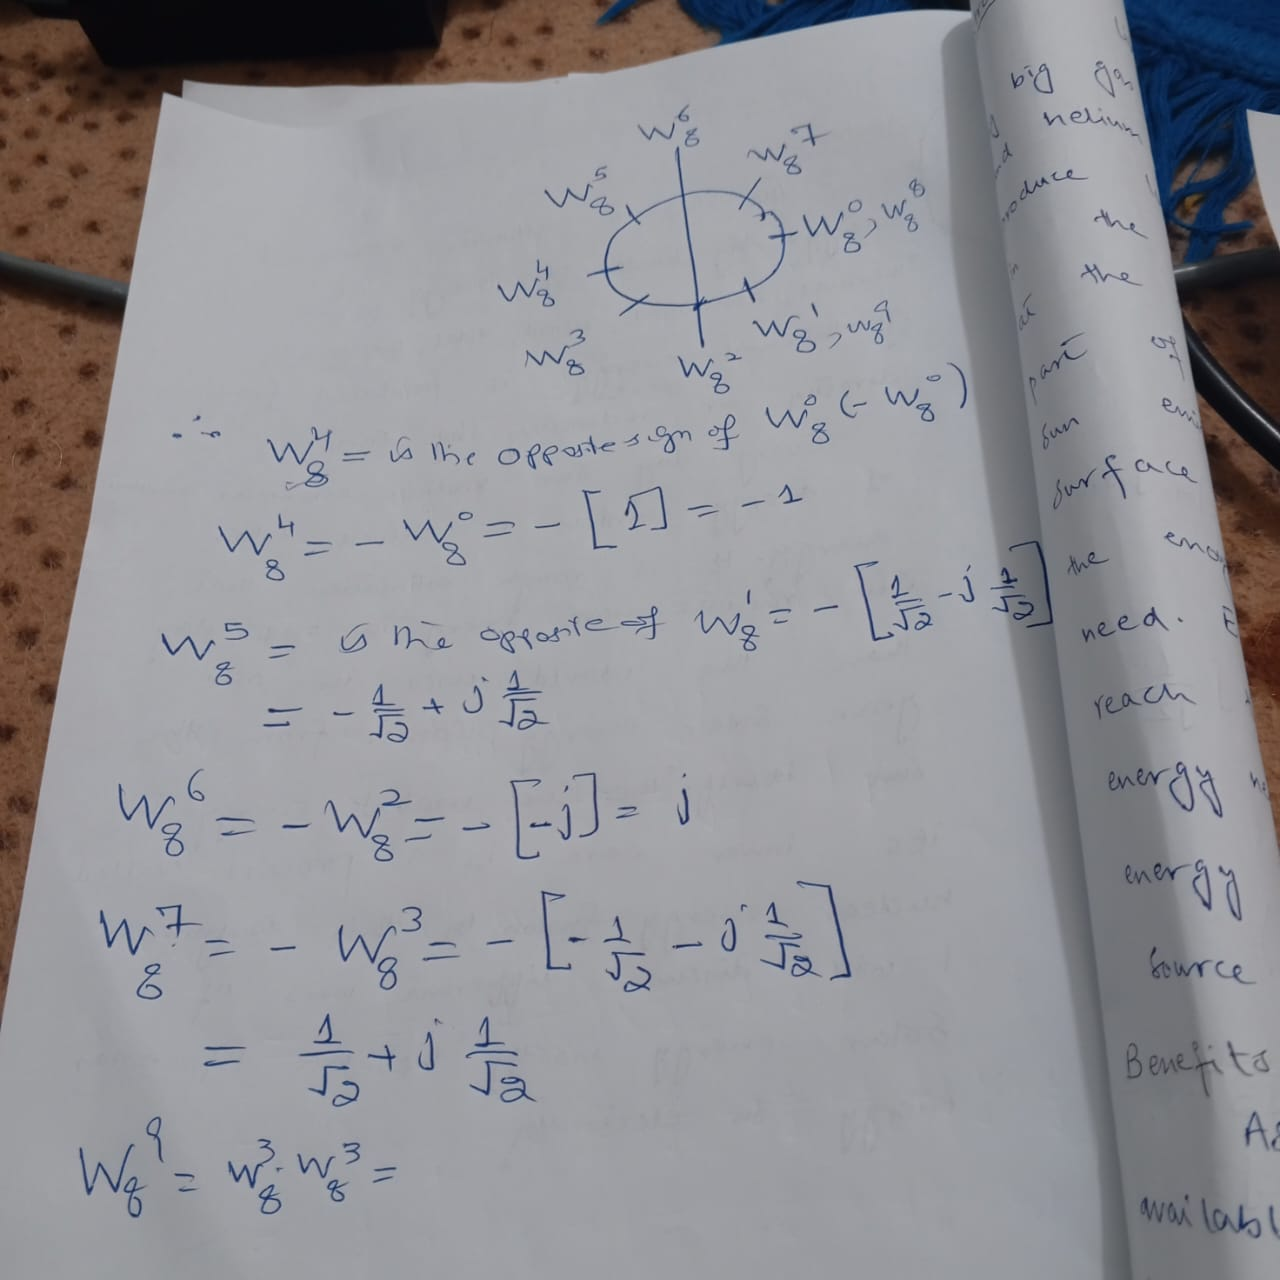 W₈⁶
W₈⁷
W₈⁵
W₈⁰, W₈⁸
W₈⁴
W₈³
W₈¹, W₈⁹
W₈²
∴ W₈⁴ = is the opposite sign of W₈⁰ (- W₈⁰)
W₈⁴ = - W₈⁰ = - [1] = - 1
W₈⁵ = is the opposite of W₈¹ = - [1/√2 - j 1/√2]
= - 1/√2 + j 1/√2
W₈⁶ = - W₈² = - [-j] = j
W₈⁷ = - W₈³ = - [- 1/√2 - j 1/√2]
= 1/√2 + j 1/√2
W₈⁹ = W₈³ · W₈³ =
big
helium
produce
the
in the
at
part of
sun
surface
the
need.
reach
energy
energy
source
Benefits